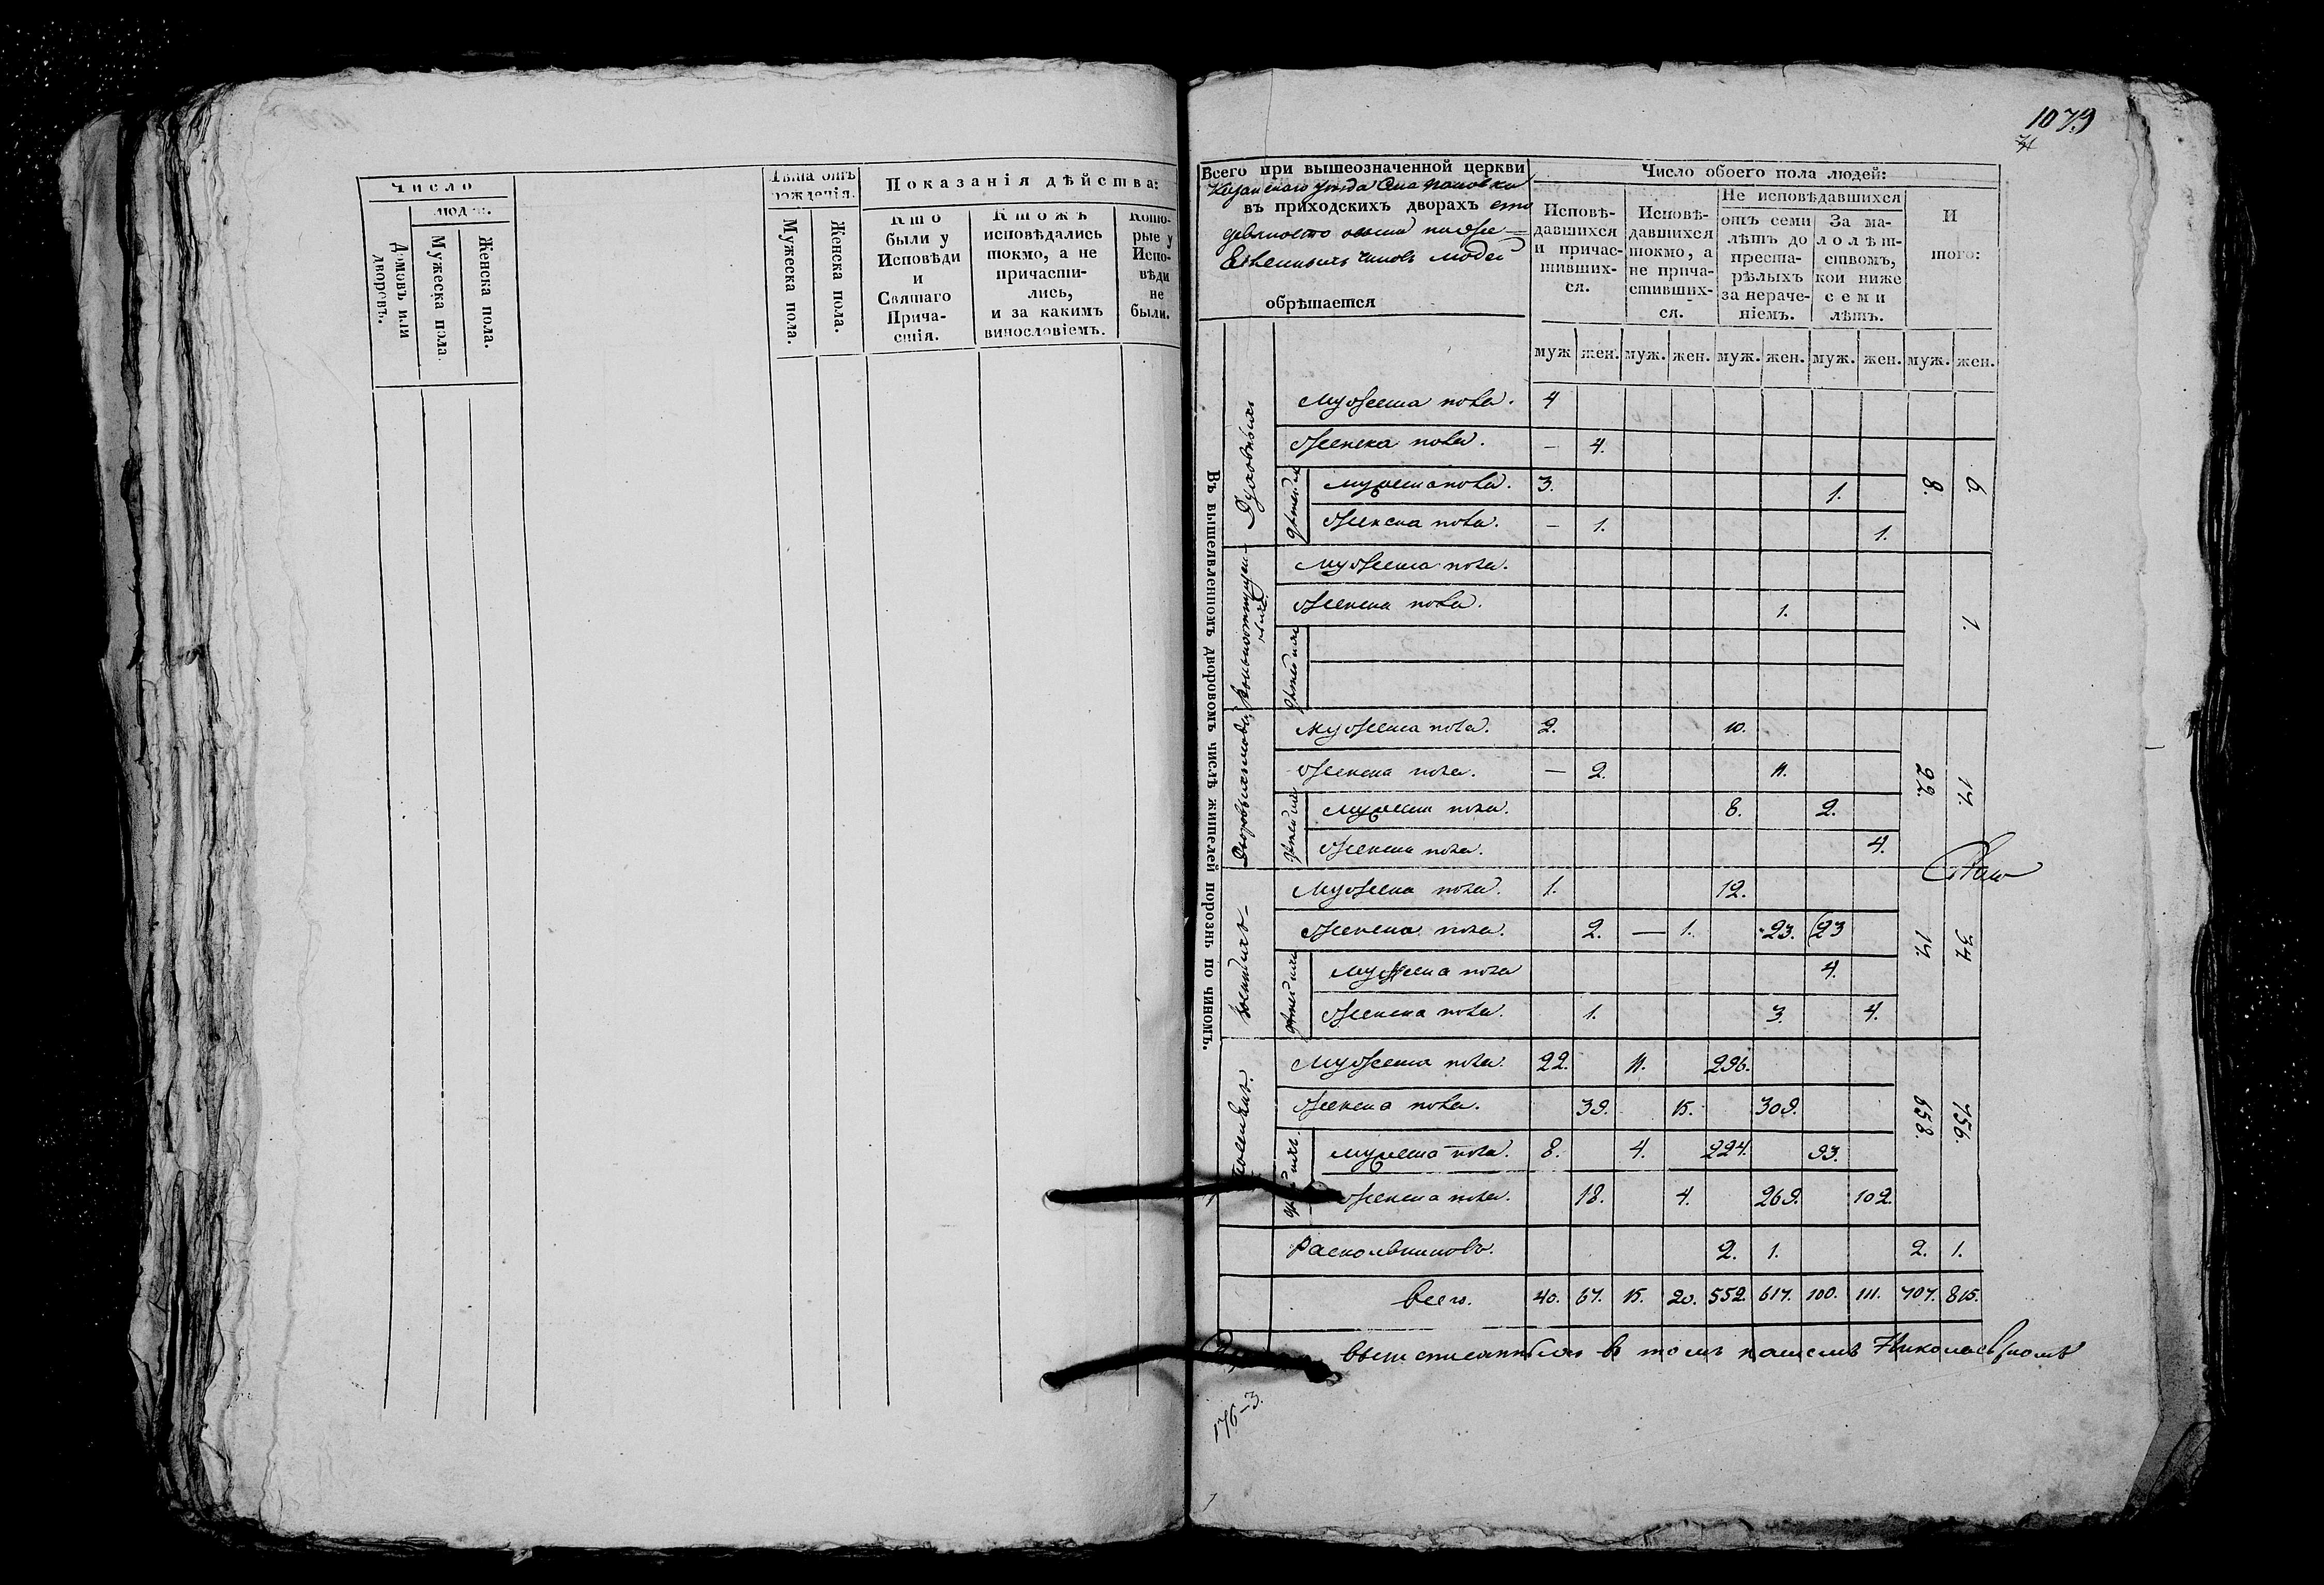 Число
людей.
Домовъ или дворовъ.
Мужеска пола.
Женска пола.
Лѣта отъ рожденія.
Мужеска пола.
Женска пола.
Показанія дѣйства:
Кто были у Исповѣди и Святаго Причастія.
Ктожъ исповѣдались токмо, а не причастились, и за какимъ винословіемъ.
Которые у Исповѣди не были.
1079
Всего при вышеозначенной церкви
уѣзда
въ приходскихъ дворахъ сто
девяносто осьми
чиновъ людей
обрѣтается
Число обоего пола людей:
Исповѣдавшихся и причастившихся.
Исповѣдавшихся токмо, а не причастившихся.
Не исповѣдавшихся
отъ семи лѣтъ до престарѣлыхъ за нераченіемъ.
За малолѣтствомъ, кои ниже семи лѣтъ.
И того:
муж жен. муж. жен. муж. жен. муж. жен. муж. жен.
Въ вышеявленномъ дворовомъ числѣ жителей порознь по чиномъ.
Духовныхъ
Мужеска пола. 4
Женска пола. — 4.
дѣтей ихъ
мужеска пола. 3. 1.
Женска пола. — 1. 1.
8. 6.
Мужеска пола.
Женска пола. 1.
дѣтей ихъ
1.
Дворовыхъ людей
Мужеска пола. 2. 10.
Женска пола. — 2. 11.
дѣтей ихъ
мужеска пола. 8. 2.
Женска пола. 4.
22. 17.
Военныхъ
Мужеска пола. 1. 12.
Женска пола. 2. — 1. 23. 23
дѣтей ихъ
мужеска пола 4.
Женска пола. 1. 3. 4.
17 34
Поселянъ.
Мужеска пола. 22. 11. 296.
Женска пола. 39. 15. 309.
ихъ.
мужеска пола. 8. 4. 224. 93.
Женска пола. 18. 4. 269. 102.
658. 756.
Раскольниковъ. 2. 1. 2. 1.
всего. 40. 67. 15. 20. 552. 617. 100. 111. 707. 815.
въ томъ
176-3.